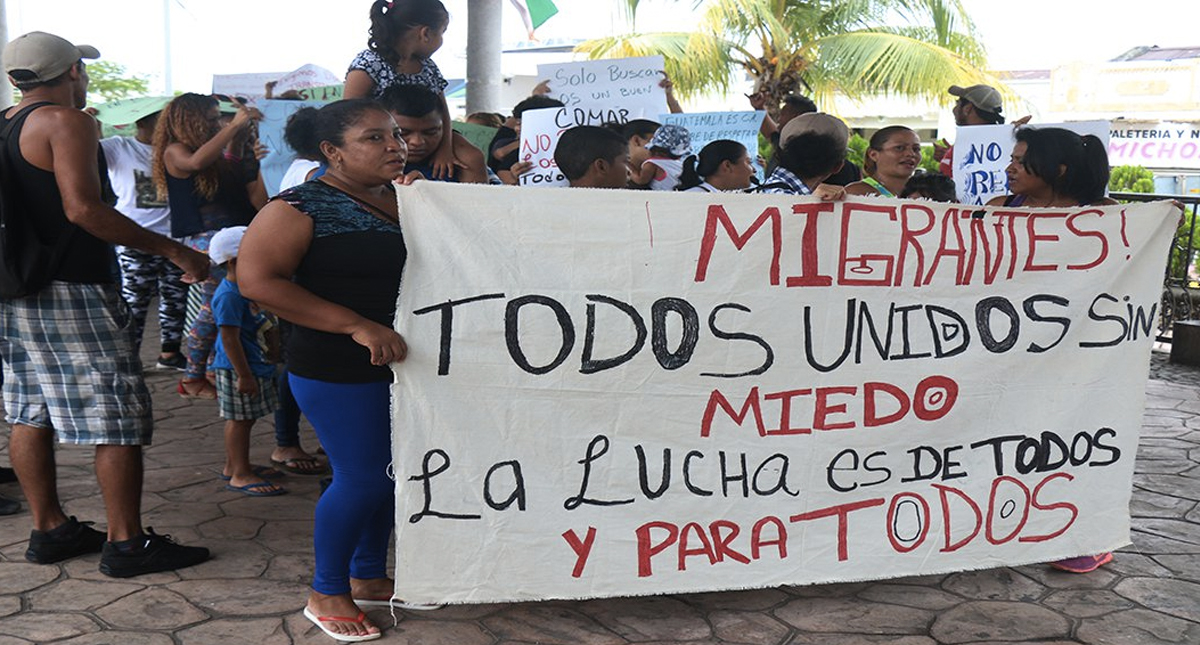 Solo BuscaN
OS UN BUEN
COMAR
NO
LOS
TODO
GUATEMALA ES CU
DRE DE RESPETAR
NO
RE
PALETERIA Y N
MICHO
¡MIGRANTES!
TODOS UNIDOS SiN
MIEDO
La LUCHA es DE TODOS
Y PARA TODOS